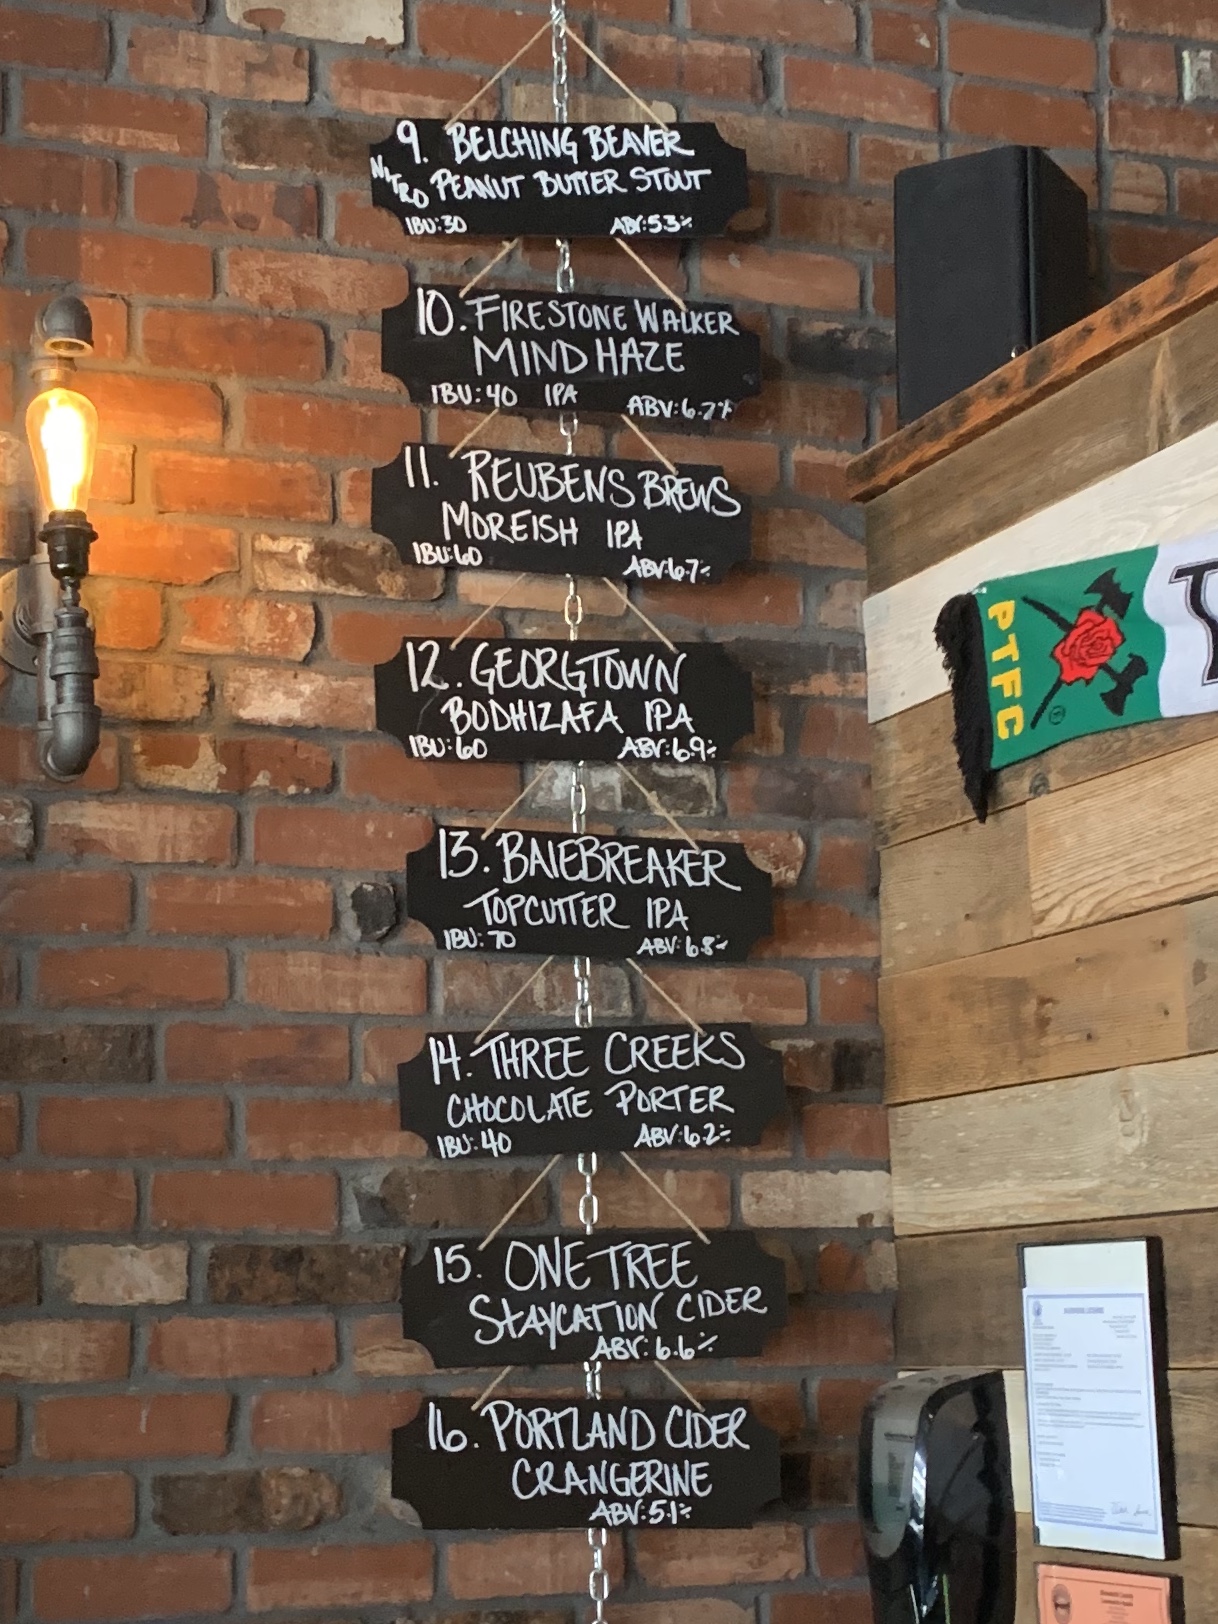 9. BELCHING BEAVER
NITRO PEANUT BUTTER STOUT
IBU:30 ABV:5.3%
10. FIRESTONE WALKER
MIND HAZE
IBU:40 IPA ABV:6.7%
11. REUBENS BREWS
MOREISH IPA
IBU:60 ABV:6.7%
12. GEORGTOWN
BODHIZAFA IPA
IBU:60 ABV:6.9%
13. BALEBREAKER
TOPCUTTER IPA
IBU:70 ABV:6.8%
14. THREE CREEKS
CHOCOLATE PORTER
IBU:40 ABV:6.2%
15. ONE TREE
STAYCATION CIDER
ABV:6.6%
16. PORTLAND CIDER
CRANGERINE
ABV:5.1%
PTFC